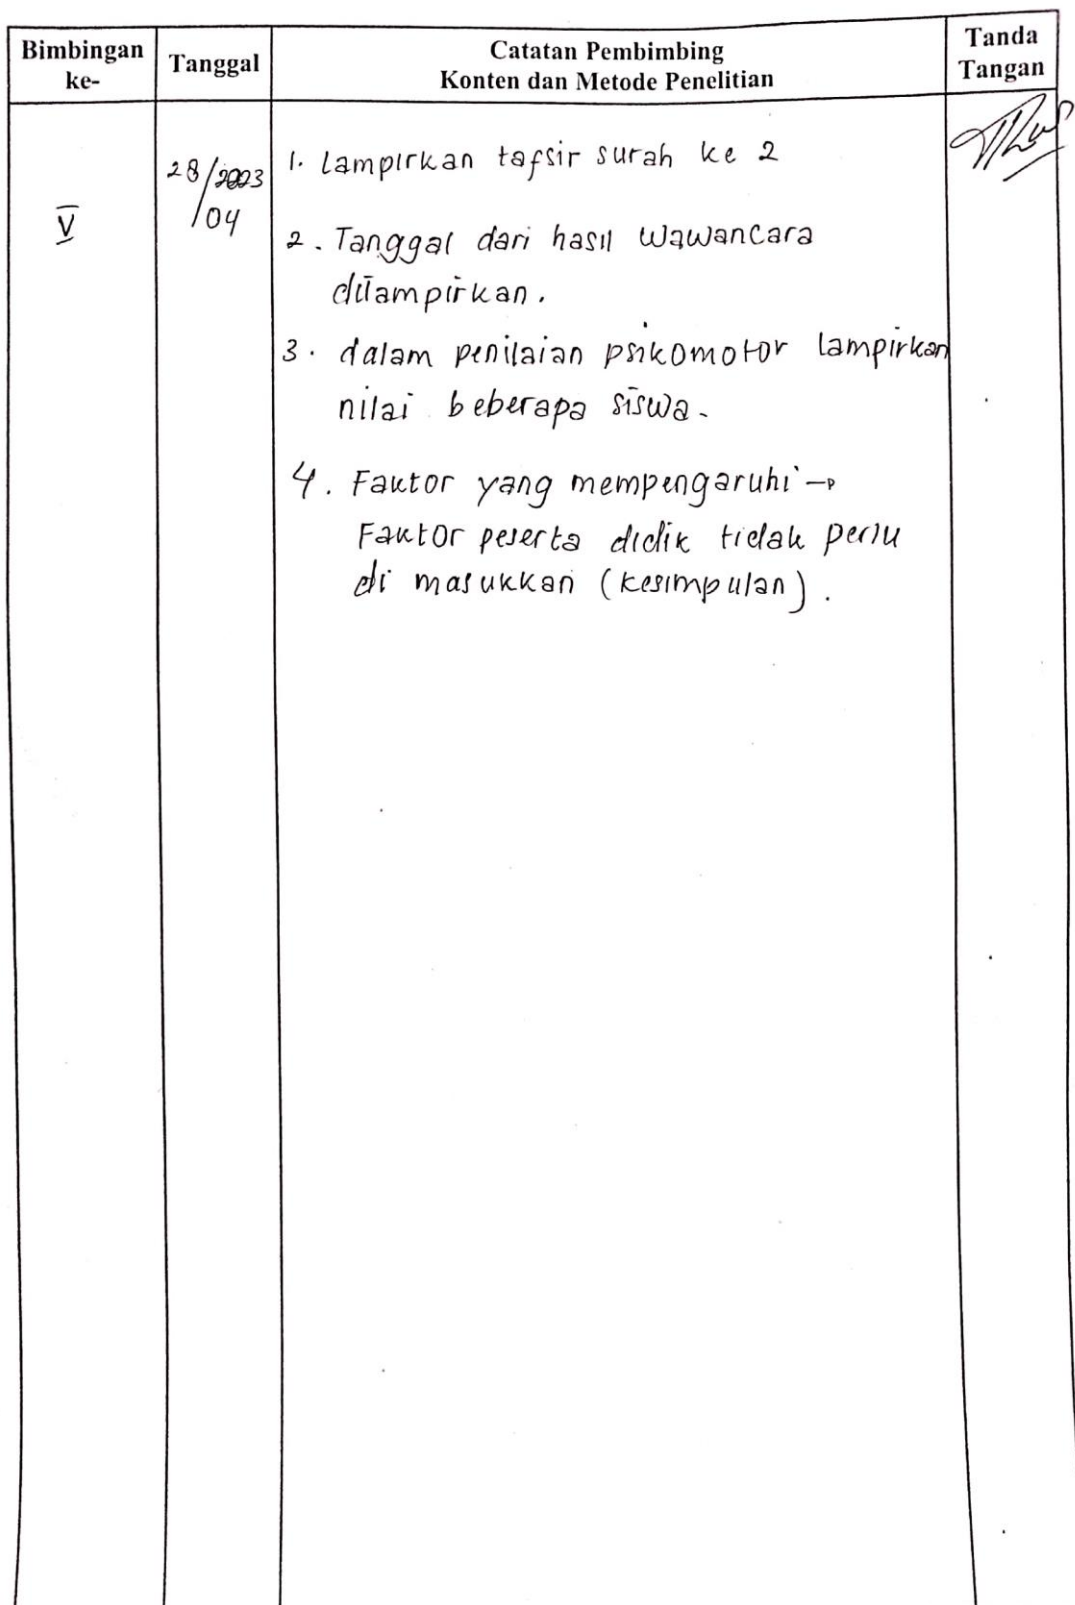 Bimbingan ke-
Tanggal
Catatan Pembimbing
Konten dan Metode Penelitian
Tanda Tangan
V
28/2023
/04
1. Lampirkan tafsir surah ke 2
2. Tanggal dari hasil wawancara
dilampirkan.
3. dalam penilaian psikomotor lampirkan
nilai beberapa siswa.
4. Faktor yang mempengaruhi →
Faktor peserta didik tidak perlu
di masukkan (kesimpulan).